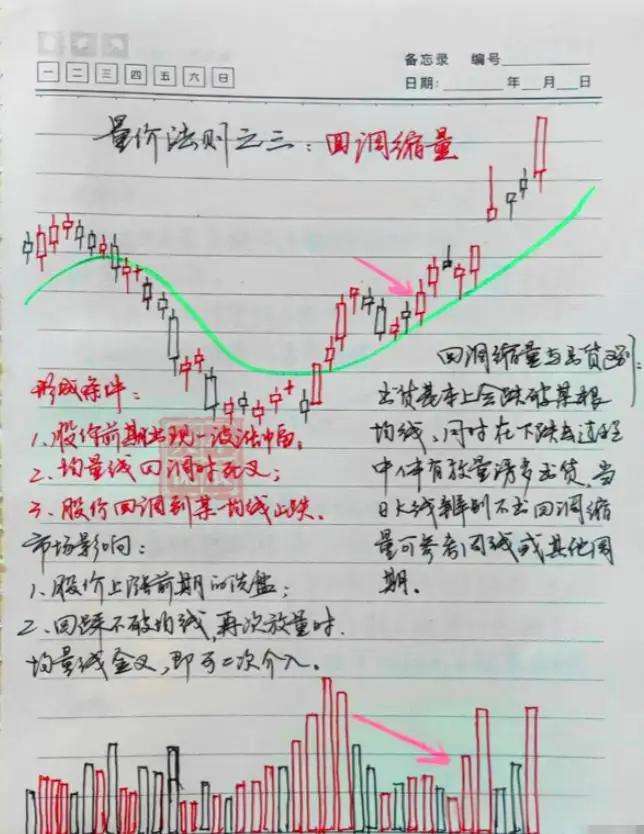 备忘录 编号
一 二 三 四 五 六 日
日期: 年 月 日
量价法则之三：回调缩量
回调缩量与出货区别：
形成条件：
1、股价前期出现一波涨幅；
2、均量线回调时死叉；
3、股价回调到某一均线止跌．
市场影响：
1、股价上涨前期的洗盘；
2、回踩不破均线，再次放量时．
均量线金叉，即可二次介入。
出货基本上会跌破某根
均线、同时在下跌去过程
中伴有放量诱多出货．当
日K线辨别不出回调缩
量可参考周线或其他周
期．